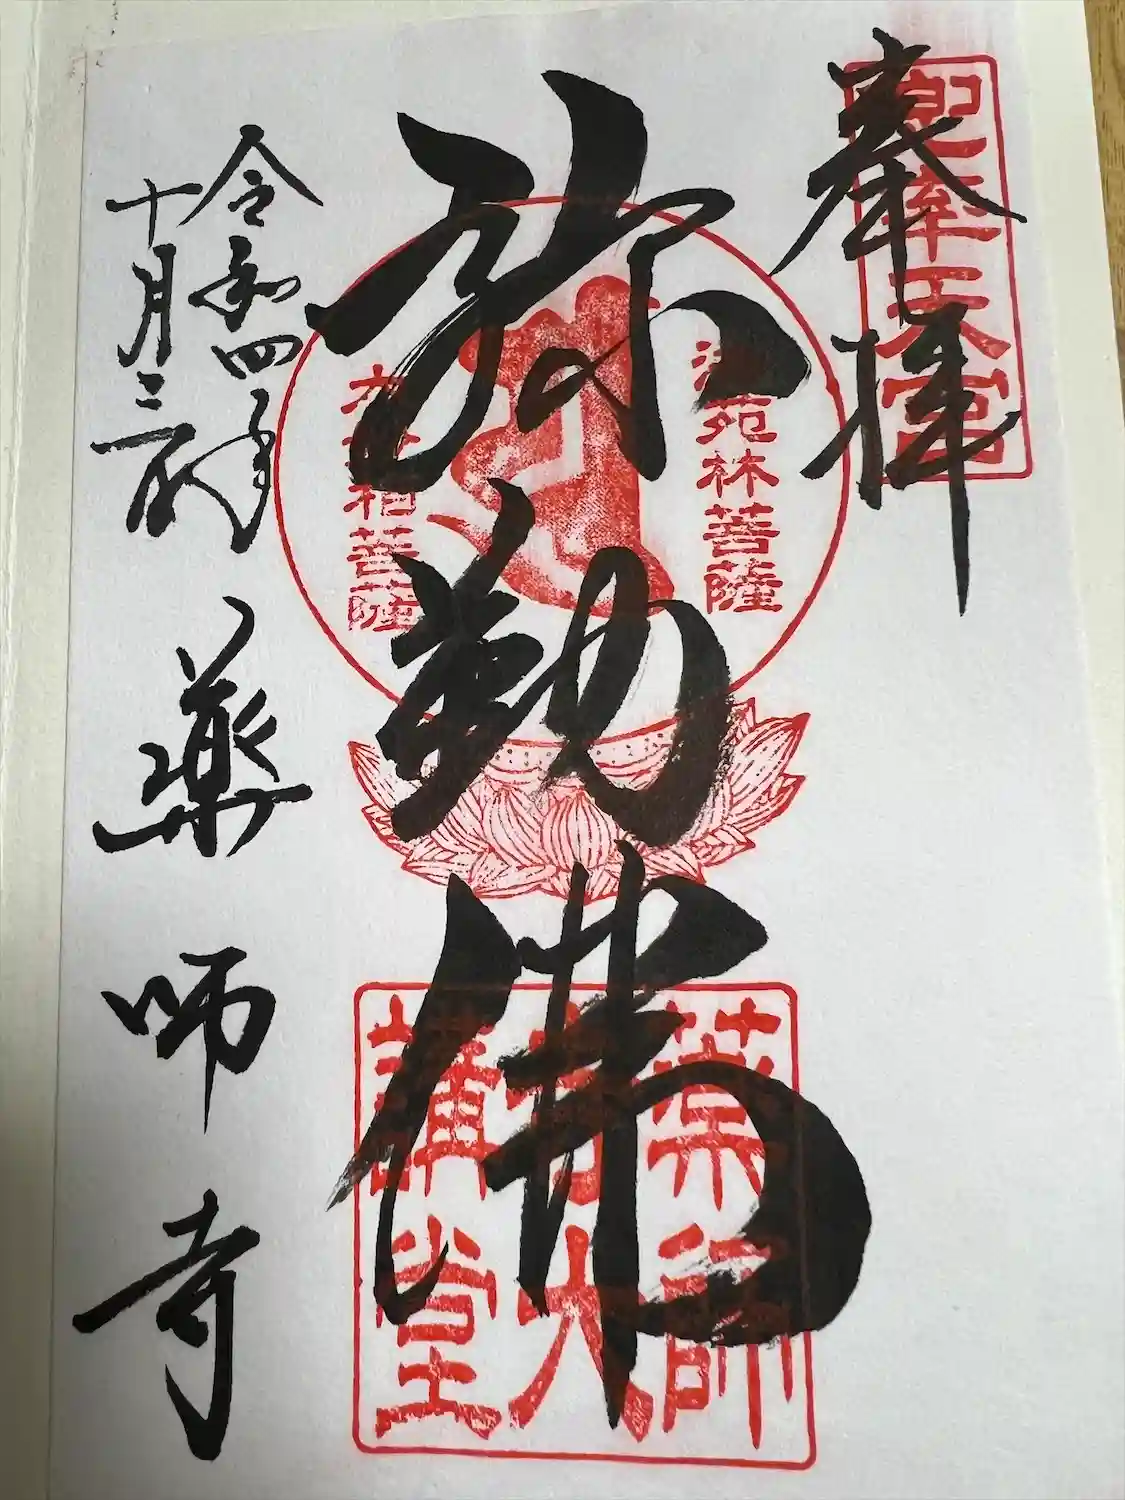 奉拝
兜率天宮
弥勒佛
法苑林菩薩
大妙相菩薩
薬師寺大講堂
令和四年
十月三十一日
薬師寺